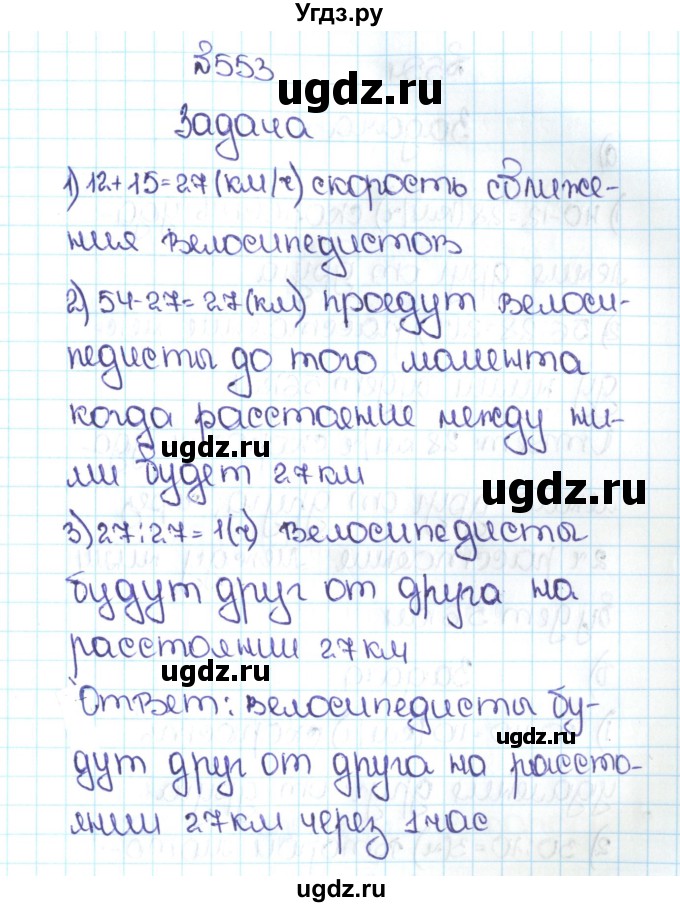 Угдз.ру
№553
ugdz.ru
Задача
1) 12+15=27(км/ч) скорость сближе-
ния велосипедистов
2) 54-27=27(км) проедут велоси-
педисты до того момента
когда расстояние между ни-
ugdz.ru
ми будет 27км
ugdz.ru
3) 27:27=1(ч) велосипедисты
будут друг от друга на
расстоянии 27км
ugdz.ru
Ответ: велосипедисты бу-
ugdz.ru
дут друг от друга на рассто-
янии 27км через 1час
ugdz.ru